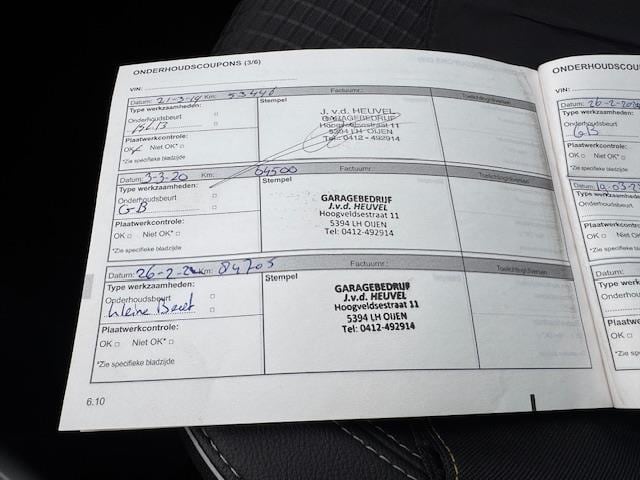 ONDERHOUDSCOUPONS (3/6)
VIN:
Datum: 21-3-19 Km: 53446 Factuurnr.: Toelichting/diversen
Type werkzaamheden: Stempel
Onderhoudsbeurt
Plaatwerkcontrole:
OK Niet OK*
*Zie specifieke bladzijde
J. v.d. HEUVEL
GARAGEBEDRIJF
Hoogveldsestraat 11
5394 LH OIJEN
Tel.: 0412-492914
Datum: 3-3-20 Km: 69500 Factuurnr.: Toelichting/diversen
Type werkzaamheden: Stempel
Onderhoudsbeurt
GB
Plaatwerkcontrole:
OK Niet OK*
*Zie specifieke bladzijde
GARAGEBEDRIJF
J.v.d. HEUVEL
Hoogveldsestraat 11
5394 LH OIJEN
Tel: 0412-492914
Datum: 26-2- Km: 84705 Factuurnr.: Toelichting/diversen
Type werkzaamheden: Stempel
Onderhoudsbeurt
kleine Beurt
Plaatwerkcontrole:
OK Niet OK*
*Zie specifieke bladzijde
GARAGEBEDRIJF
J.v.d. HEUVEL
Hoogveldsestraat 11
5394 LH OIJEN
Tel: 0412-492914
6.10
ONDERHOUDSCOU
VIN:
Datum: 26-2-202
Type werkzaamhed
Onderhoudsbeurt
GB
Plaatwerkcontrole:
OK Niet OK*
*Zie specifieke bladzij
Datum: 10-03-2
Type werkzaamh
Onderhoudsbeurt
Plaatwerkcontro
OK Niet OK
*Zie specifieke bla
Datum:
Type werk
Onderhoud
Plaatwerk
OK
*Zie spec